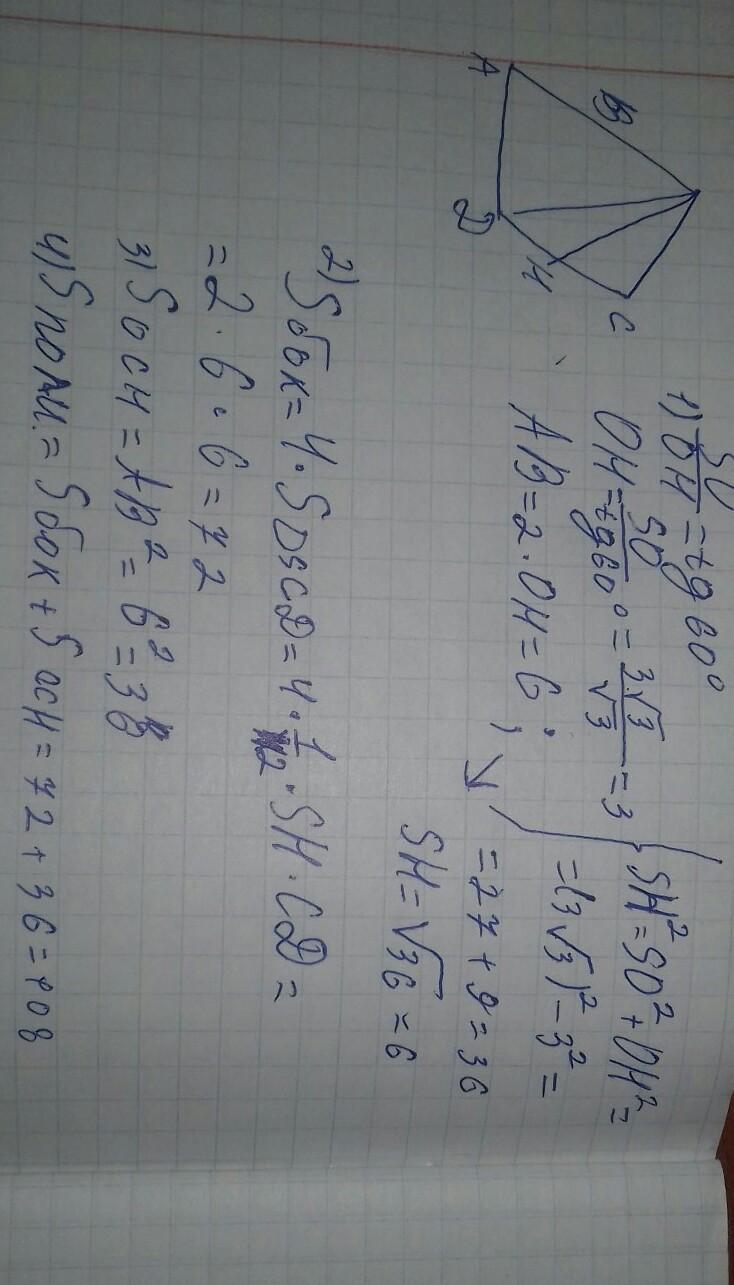 A
B
C
D
H
1) SO/OH = tg 60°
OH = SO/tg 60° = 3√3/√3 = 3
AB = 2 · OH = 6;
SH² = SO² + OH² =
= (3√3)² - 3² =
= 27 + 9 = 36
SH = √36 = 6
2) Sбок = 4 · SDSCD = 4 · 1/2 · SH · CD =
= 2 · 6 · 6 = 72
3) Sосн = AB² = 6² = 36
4) Sполн. = Sбок + Sосн = 72 + 36 = 108